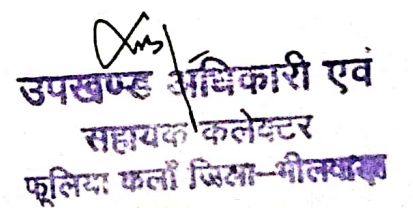 उपखण्ड अधिकारी एवं
सहायक कलेक्टर
फूलिया कलाँ जिला-भीलवाडा